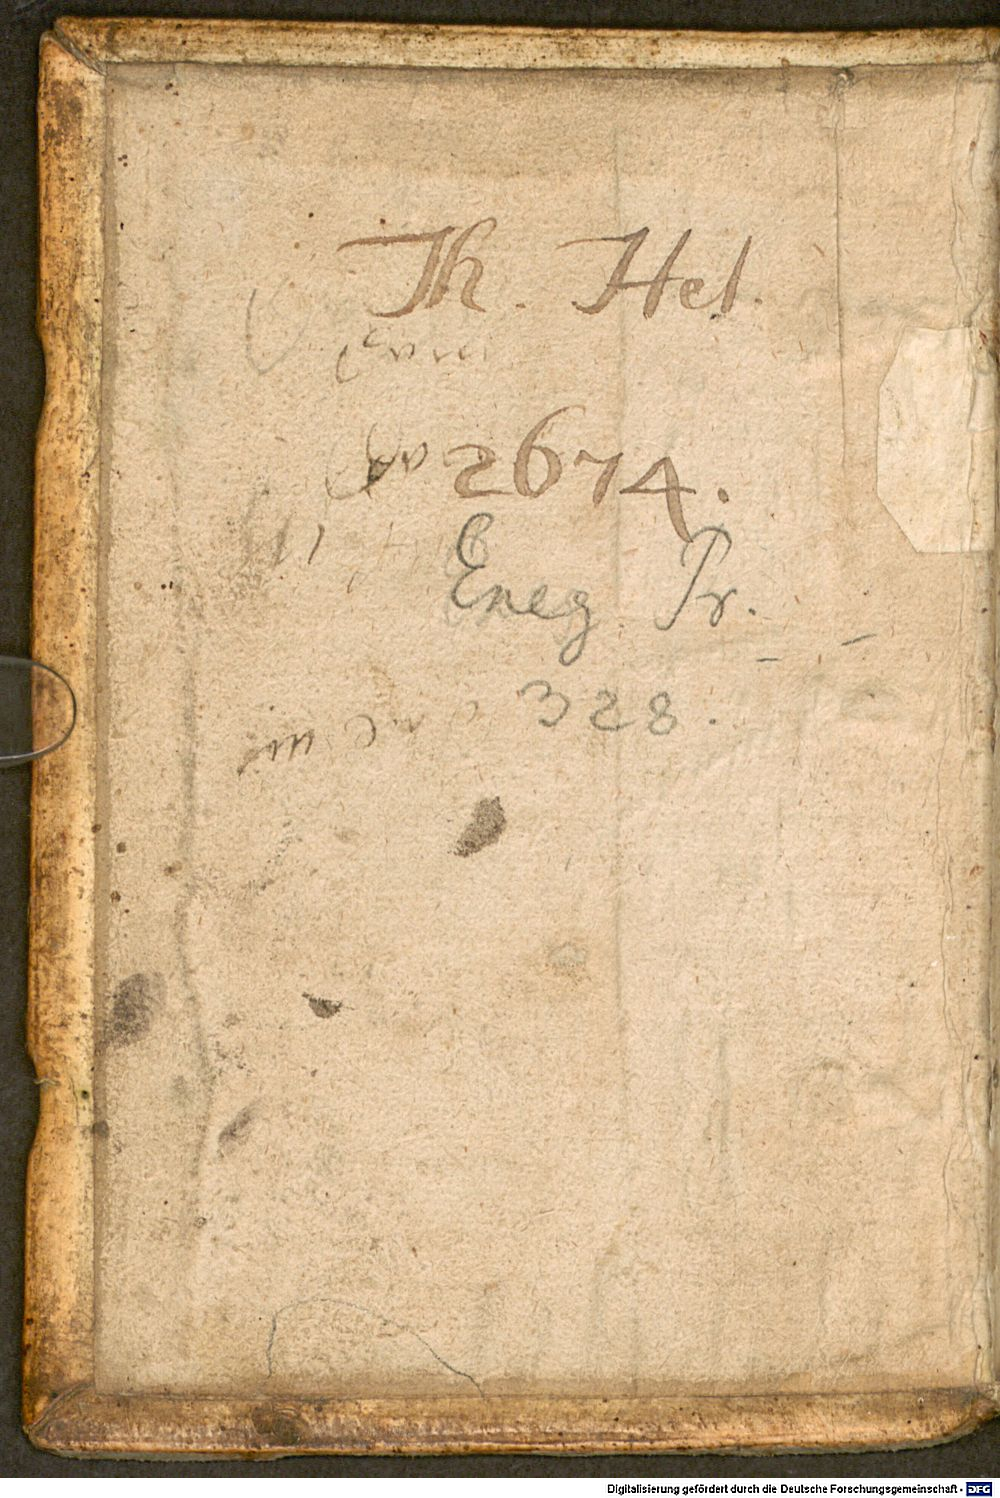 Th. Het.
2674.
Exeg Pr.
328.
Digitalisierung gefördert durch die Deutsche Forschungsgemeinschaft - DFG